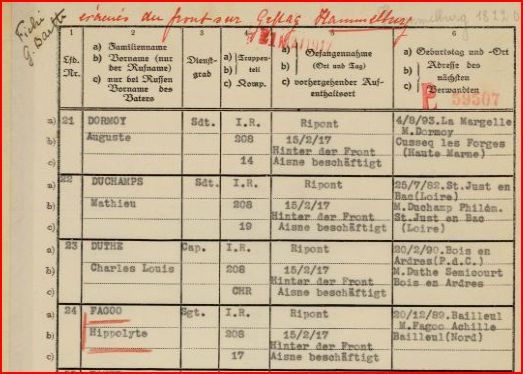 du front sur Hammelburg
Lfd. Nr.
a) Familienname
b) Vorname (nur der Rufname)
c) nur bei Russen Vorname des Vaters
Dienstgrad
a)
b) Truppenteil
c) Komp.
a) Gefangennahme
b) (Ort und Tag)
c) vorhergehender Aufenthaltsort
a) Geburtstag und -Ort
b) Adresse des nächsten
c) Verwandten
1 2 3 4 5 6
P 59507
a) 21 DORMOY Sdt. I.R. Ripont 4/8/93.La Margelle
b) Auguste 208 15/2/17 M.Dormoy
Hinter der Front Cusseq les Forges
c) 14 Aisne beschäftigt (Haute Marne)
a) 22 DUCHAMPS Sdt. I.R. Ripont 25/7/82.St.Just en Bac(Loire)
b) Mathieu 208 15/2/17 M.Duchamp Philém.
Hinter der Front St.Just en Bac
c) 19 Aisne beschäftigt (Loire)
a) 23 DUTHE Cap. I.R. Ripont 20/2/90.Bois en Ardres(P.d.C.)
b) Charles Louis 208 15/2/17 M.Duthe Semicourt
Hinter der Front Bois en Ardres
c) CHR Aisne beschäftigt
a) 24 FAGOO Sgt. I.R. Ripont 20/12/89.Bailleul
b) Hippolyte 208 15/2/17 M.Fagoo Achille
Hinter der Front Bailleul(Nord)
c) 17 Aisne beschäftigt